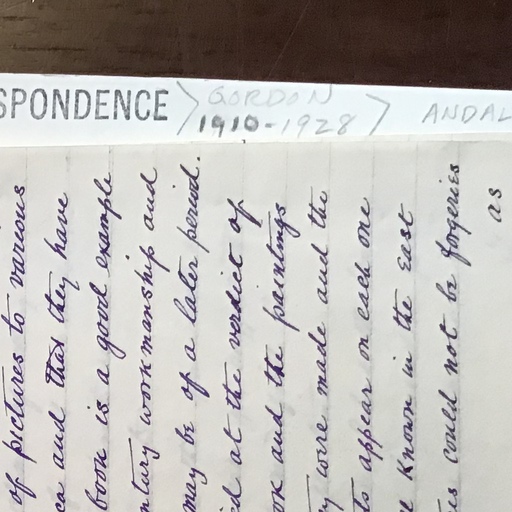 of pictures to various
and that they have
book is a good example
workmanship and
may be of a later period.
at the verdict of
and the paintings
were made and the
appear on each one
Known in the East
could not be forgeries
as
SPONDENCE
GORDON
1910-1928
ANDAL